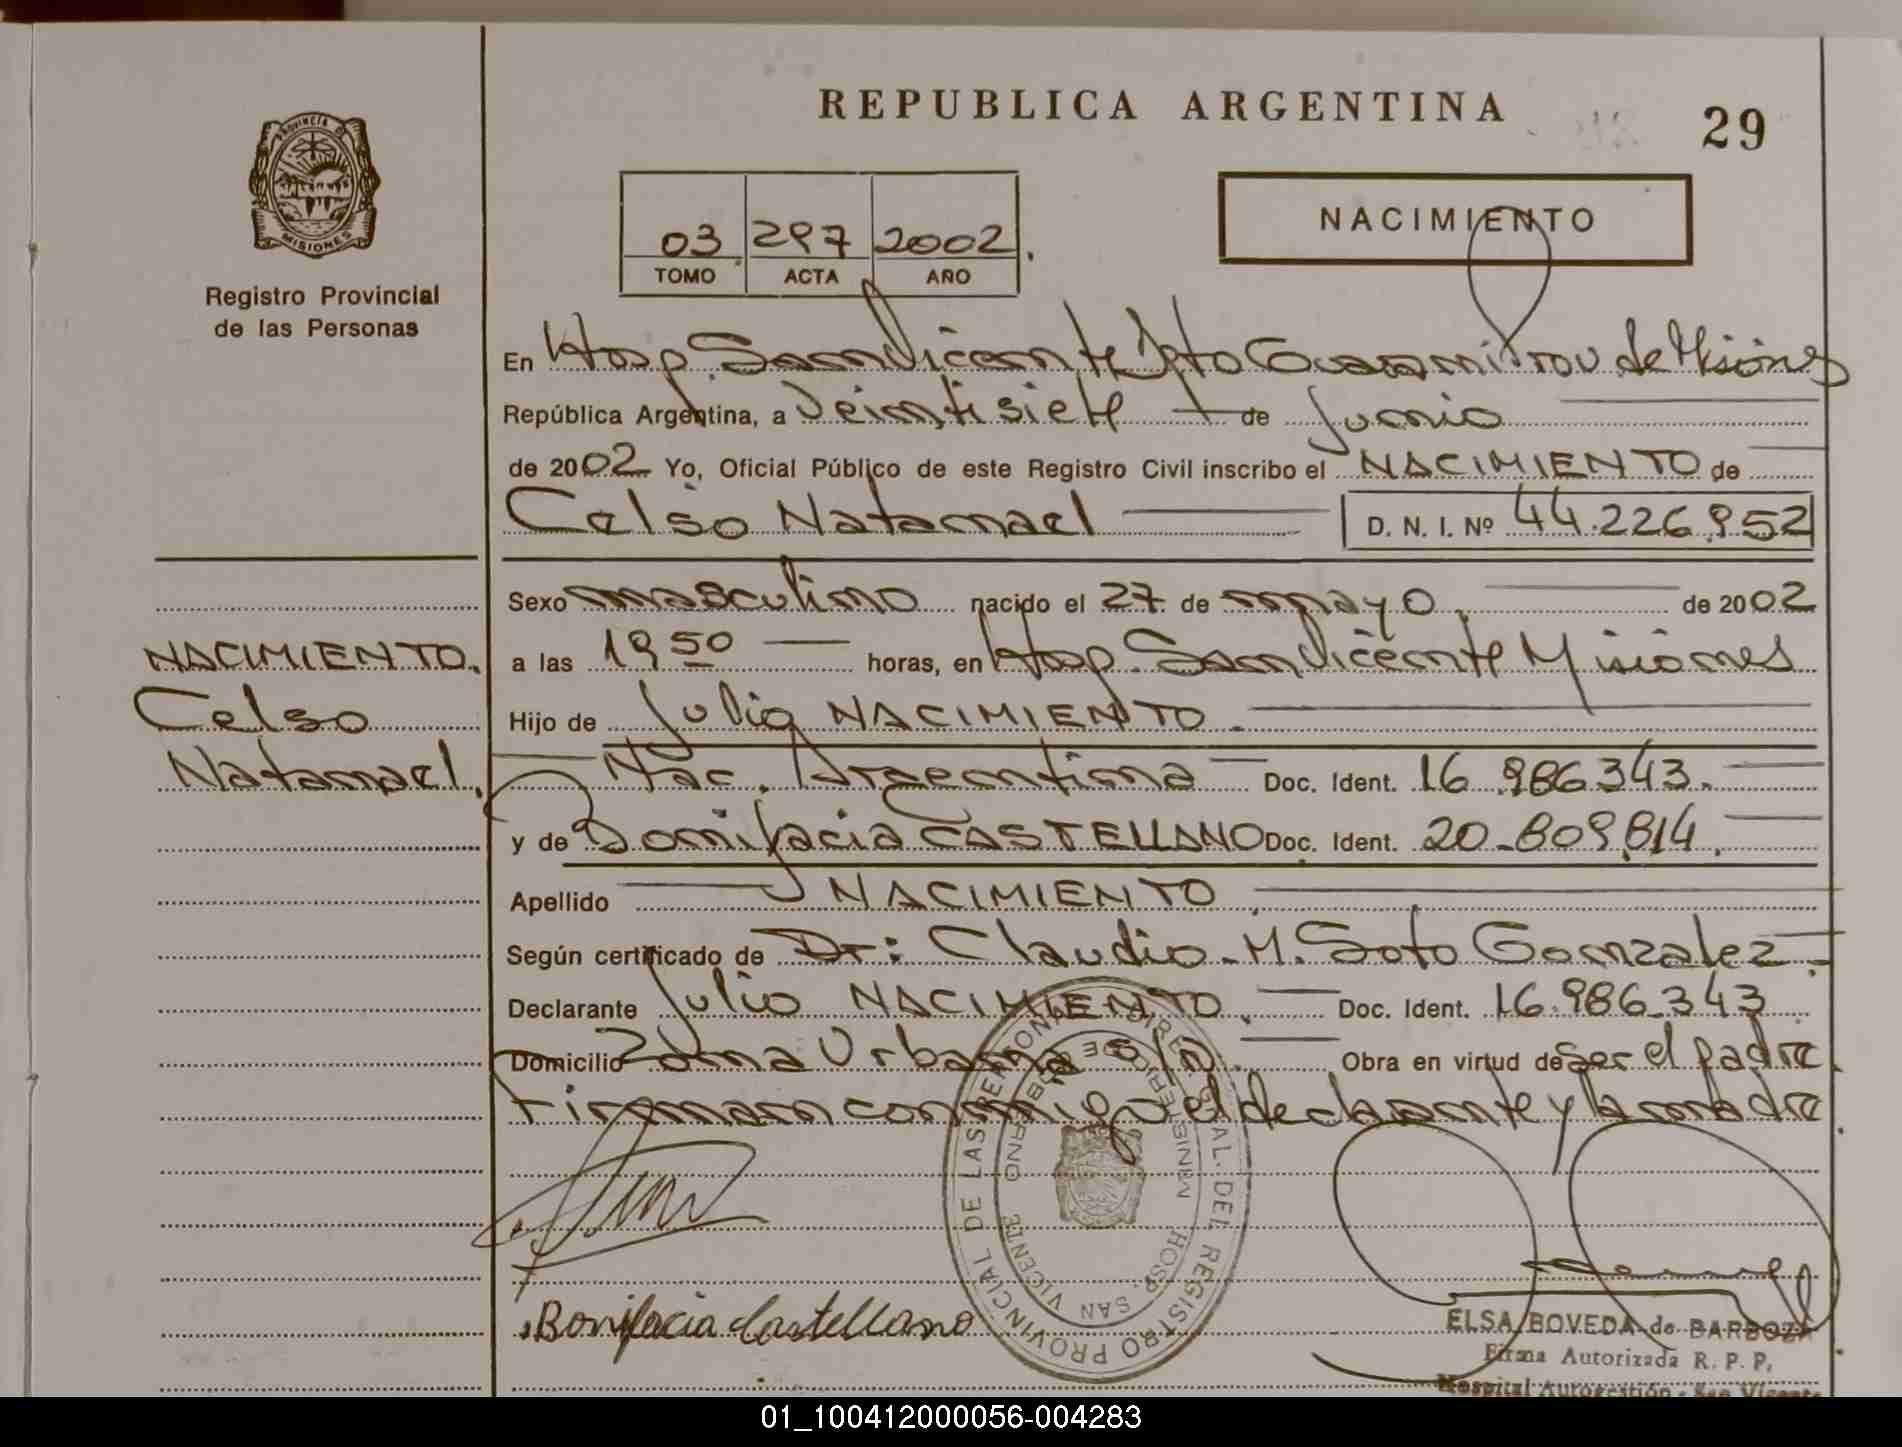 REPUBLICA ARGENTINA
29
PROVINCIA DE
MISIONES
Registro Provincial
de las Personas
03 297 2002
TOMO ACTA AÑO
NACIMIENTO
En Hosp. San Vicente Dpto Guarani Prov de Misiones
República Argentina, a Veintisiete de Junio
de 2002 Yo, Oficial Público de este Registro Civil inscribo el NACIMIENTO de
Celso Natanael D. N. I. Nº 44.226.952
Sexo masculino nacido el 27 de mayo de 2002
a las 19 50 horas, en Hosp. San Vicente Misiones
Hijo de Julio NACIMIENTO
Nac. Argentina Doc. Ident. 16.986.343.
y de Bonifacia CASTELLANO Doc. Ident. 20.809.814.
Apellido NACIMIENTO
Según certificado de Dr: Claudio M. Soto Gonzalez.
Declarante Julio NACIMIENTO. Doc. Ident. 16.986.343
Domicilio Zona Urbana s/n. Obra en virtud de Ser el padre.
Firman conmigo el declarante y la madre
NACIMIENTO.
Celso
Natanael.
REGISTRO PROVINCIAL DE LAS PERSONAS
MINISTERIO DE GOBIERNO
HOSP. SAN VICENTE
Bonifacia Castellano
ELSA BOVEDA de BARBOZA
Firma Autorizada R. P. P.
Hospital Autogestión - San Vicente
01_100412000056-004283